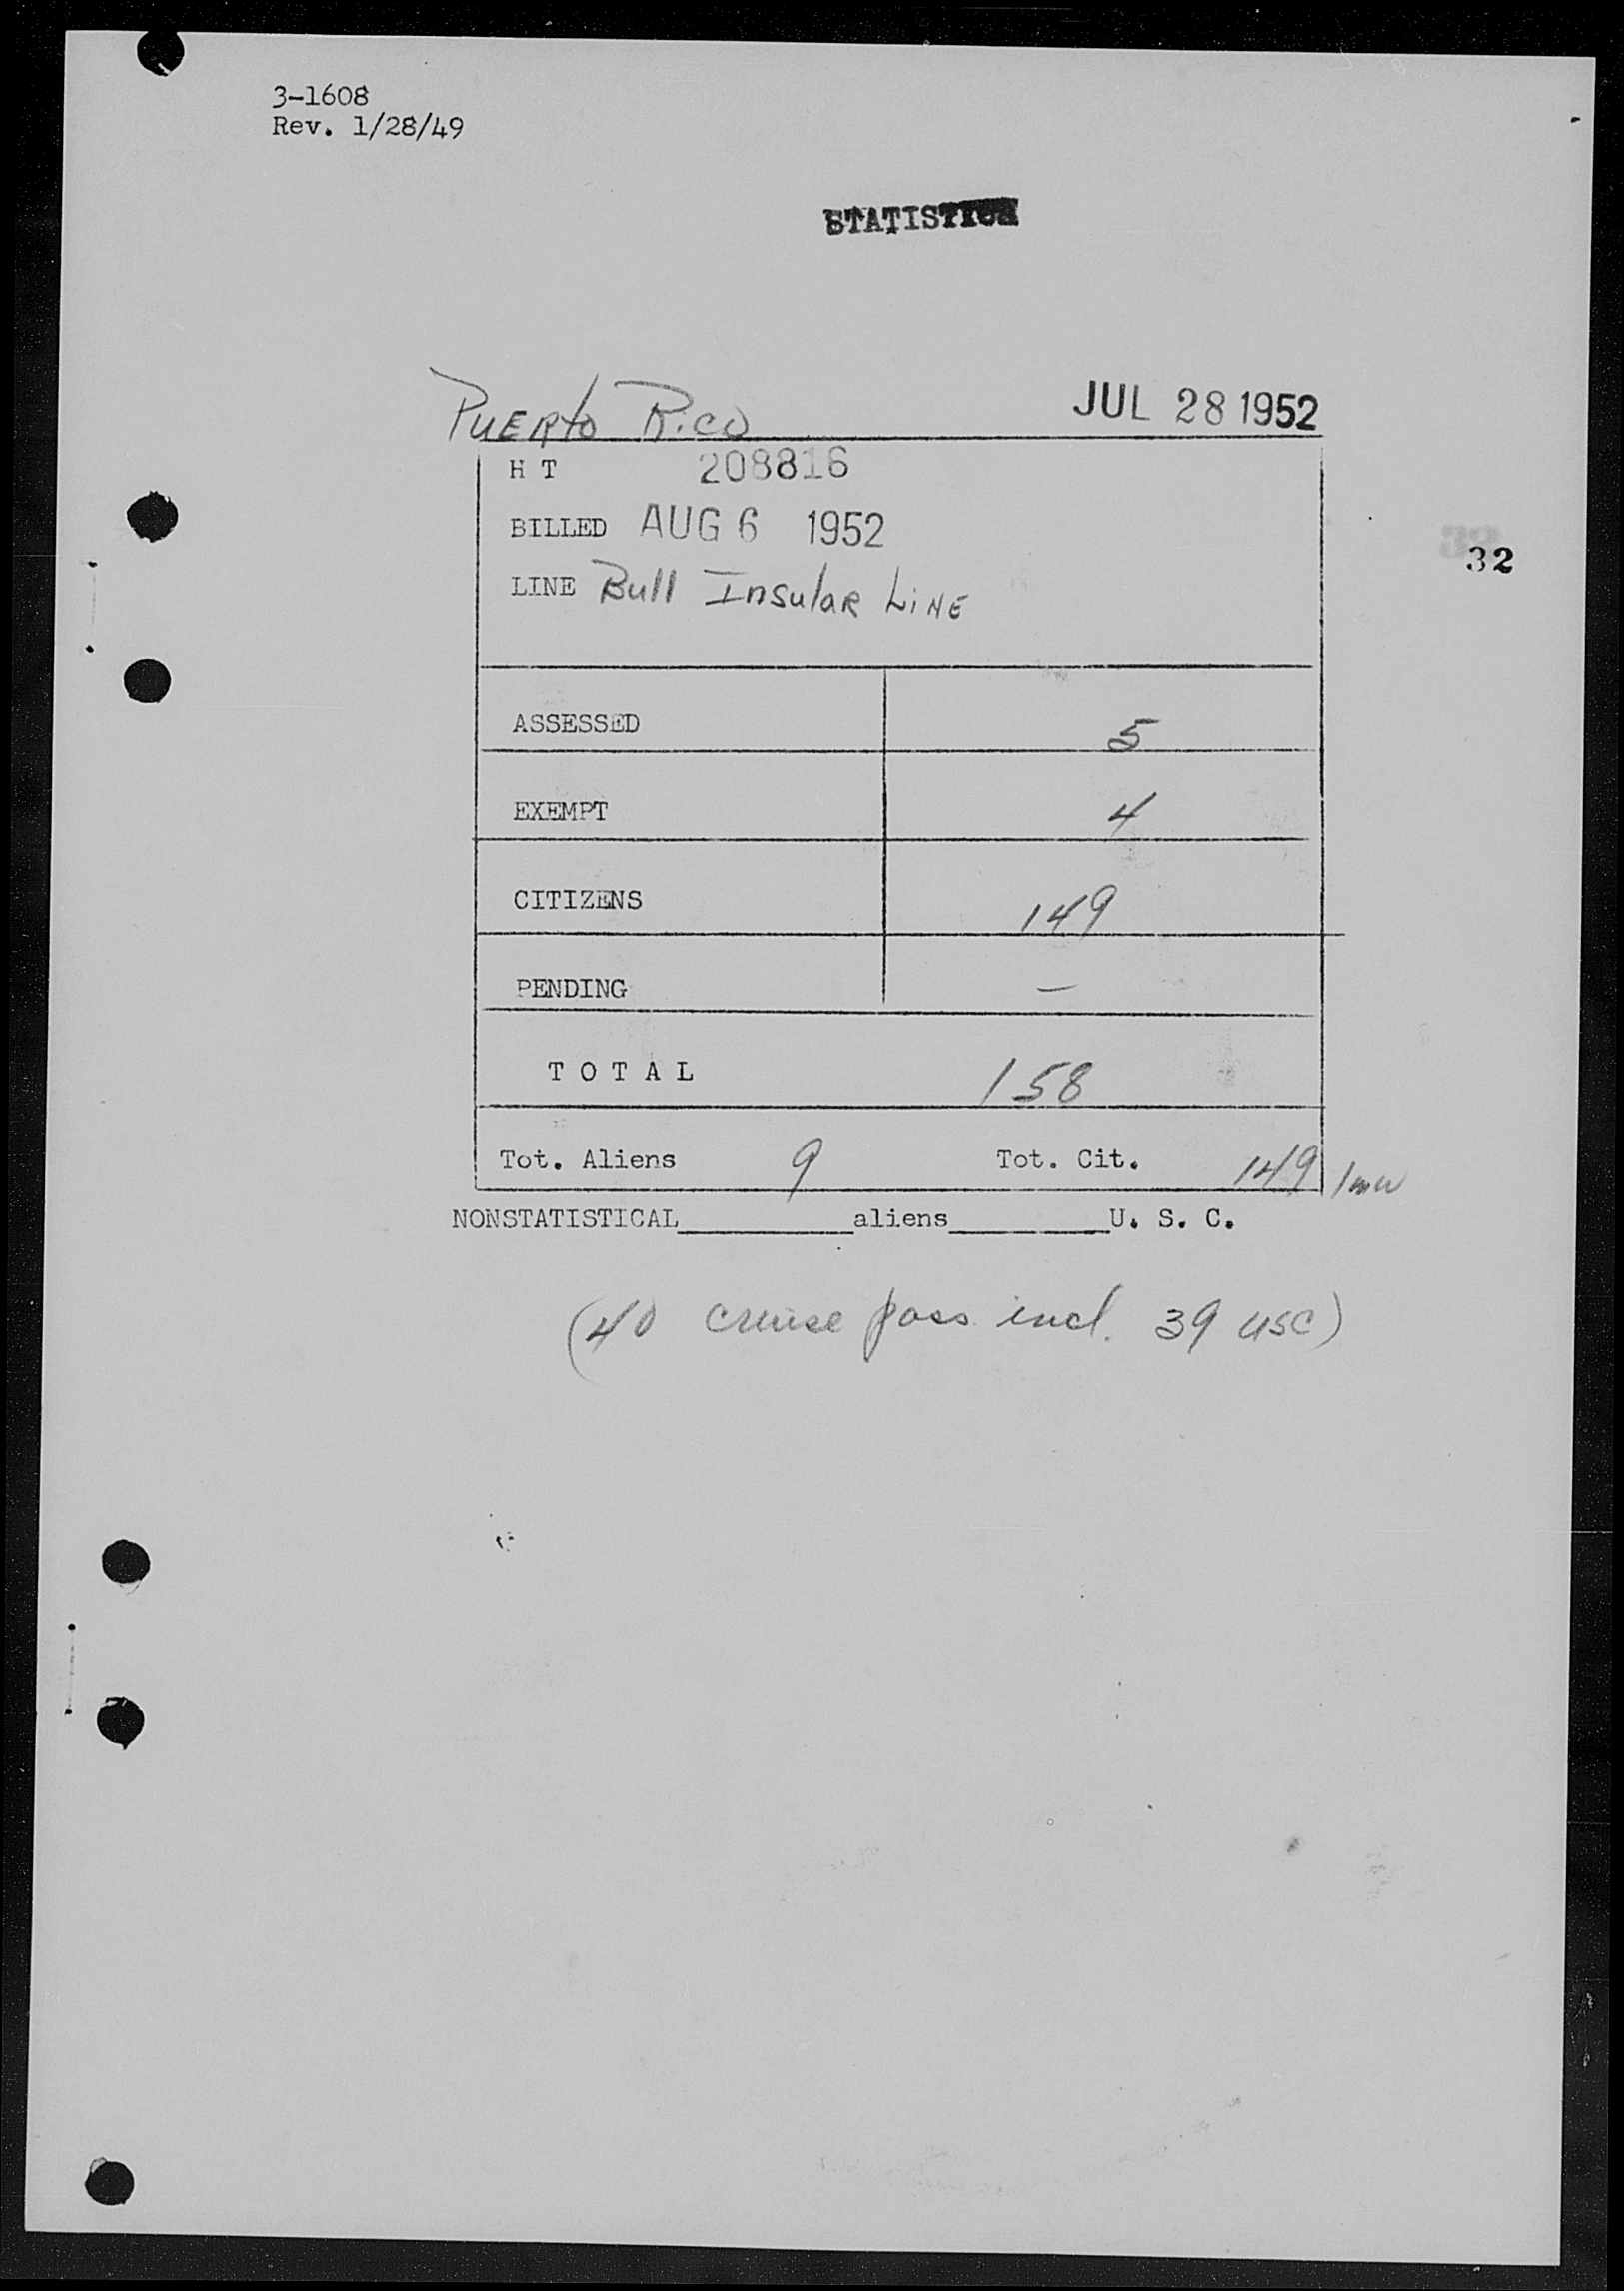 3-1608
Rev. 1/28/49
STATISTICS
PUERto Rico JUL 28 1952
H T 208816
BILLED AUG 6 1952
LINE Bull InsulaR LiNE
32
ASSESSED 5
EXEMPT 4
CITIZENS 149
PENDING —
T O T A L 158
Tot. Aliens 9 Tot. Cit. 149
NONSTATISTICAL__________aliens_________U. S. C.
(40 cruise pass incl. 39 USC)